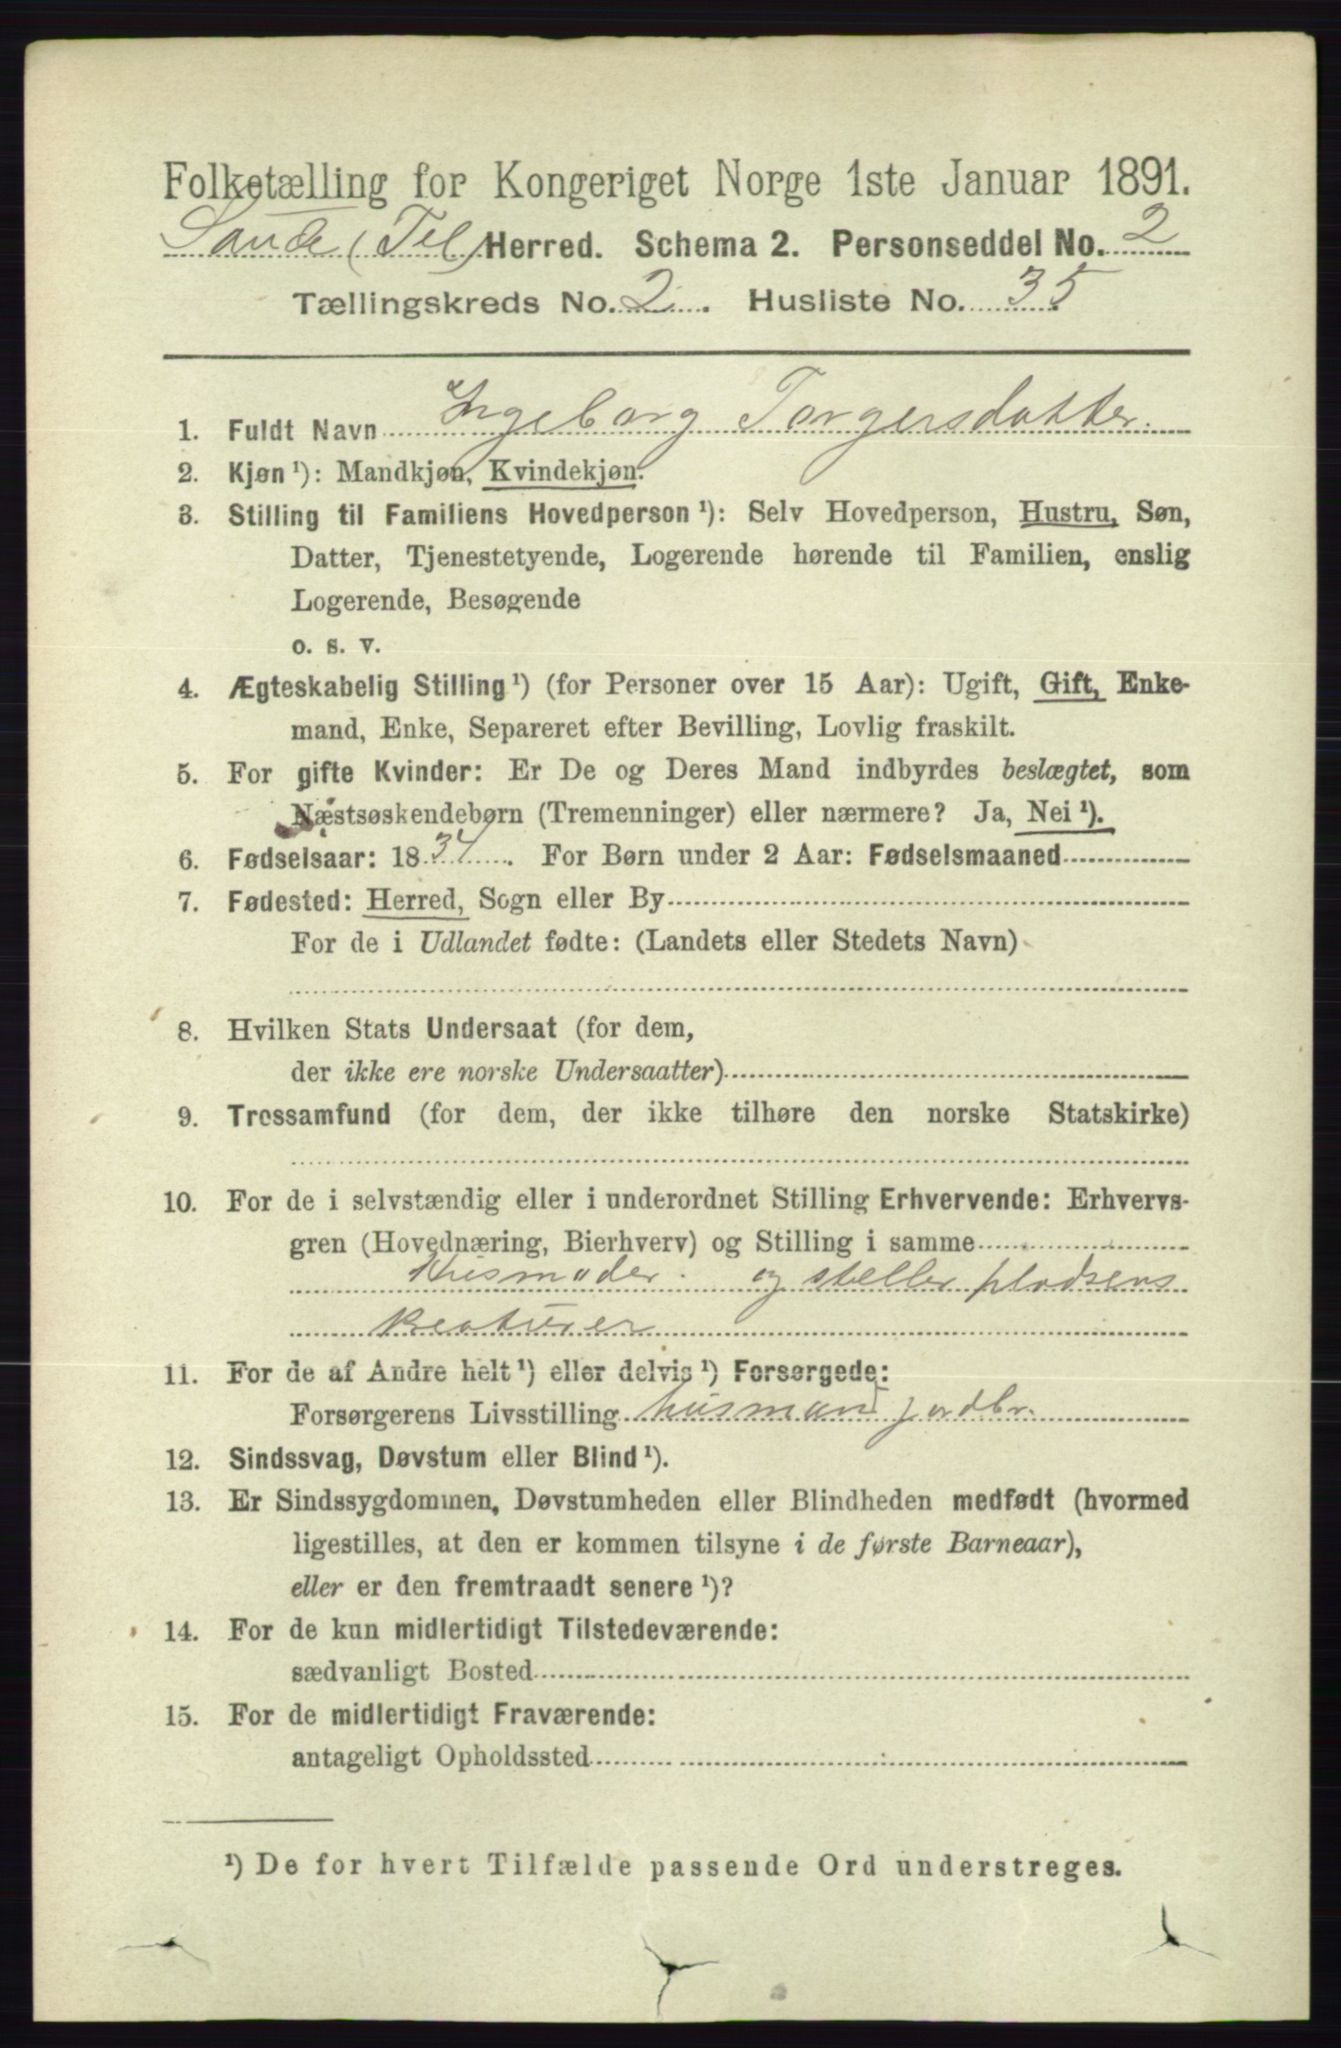 Folketælling for Kongeriget Norge 1ste Januar 1891.
Saude (Tel) Herred. Schema 2. Personseddel No. 2
Tællingskreds No. 2. Husliste No. 35
1. Fuldt Navn Ingeborg Torgersdatter.
2. Kjøn ¹): Mandkjøn, Kvindekjøn.
3. Stilling til Familiens Hovedperson ¹): Selv Hovedperson, Hustru, Søn,
Datter, Tjenestetyende, Logerende hørende til Familien, enslig
Logerende, Besøgende
o. s. v.
4. Ægteskabelig Stilling ¹) (for Personer over 15 Aar): Ugift, Gift, Enke-
mand, Enke, Separeret efter Bevilling, Lovlig fraskilt.
5. For gifte Kvinder: Er De og Deres Mand indbyrdes beslægtet, som
Næstsøskendebørn (Tremenninger) eller nærmere? Ja, Nei ¹).
6. Fødselsaar: 1834. For Børn under 2 Aar: Fødselsmaaned
7. Fødested: Herred, Sogn eller By
For de i Udlandet fødte: (Landets eller Stedets Navn)
8. Hvilken Stats Undersaat (for dem,
der ikke ere norske Undersaatter)
9. Trossamfund (for dem, der ikke tilhøre den norske Statskirke)
10. For de i selvstændig eller i underordnet Stilling Erhvervende: Erhvervs-
gren (Hovednæring, Bierhverv) og Stilling i samme
Husmoder. og steller pladsens
kreaturer
11. For de af Andre helt ¹) eller delvis ¹) Forsørgede:
Forsørgerens Livsstilling husmand jordbr.
12. Sindssvag, Døvstum eller Blind ¹).
13. Er Sindssygdommen, Døvstumheden eller Blindheden medfødt (hvormed
ligestilles, at den er kommen tilsyne i de første Barneaar),
eller er den fremtraadt senere ¹)?
14. For de kun midlertidigt Tilstedeværende:
sædvanligt Bosted
15. For de midlertidigt Fraværende:
antageligt Opholdssted
¹) De for hvert Tilfælde passende Ord understreges.